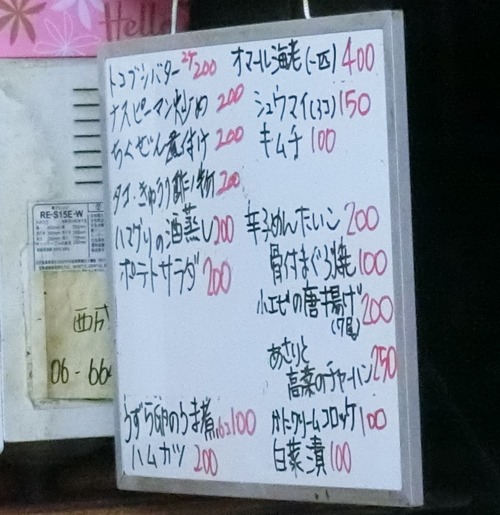 Hello
トコブシバター 2ケ 200
ナスピーマン炒め 200
ちくぜん煮付け 200
タコ・きゅうり酢の物 200
ハマグリの酒蒸し 200
ポテトサラダ 200
うずら卵のうま煮 100
ハムカツ 200
オマール海老(一匹) 400
シュウマイ(3コ) 150
キムチ 100
辛子めんたいこ 200
骨付まぐろ焼 100
小エビの唐揚げ 200
(7尾)
あさりと
高菜のチャーハン 250
かにクリームコロッケ 100
白菜漬 100
RE-S15E-W
西成
06-664